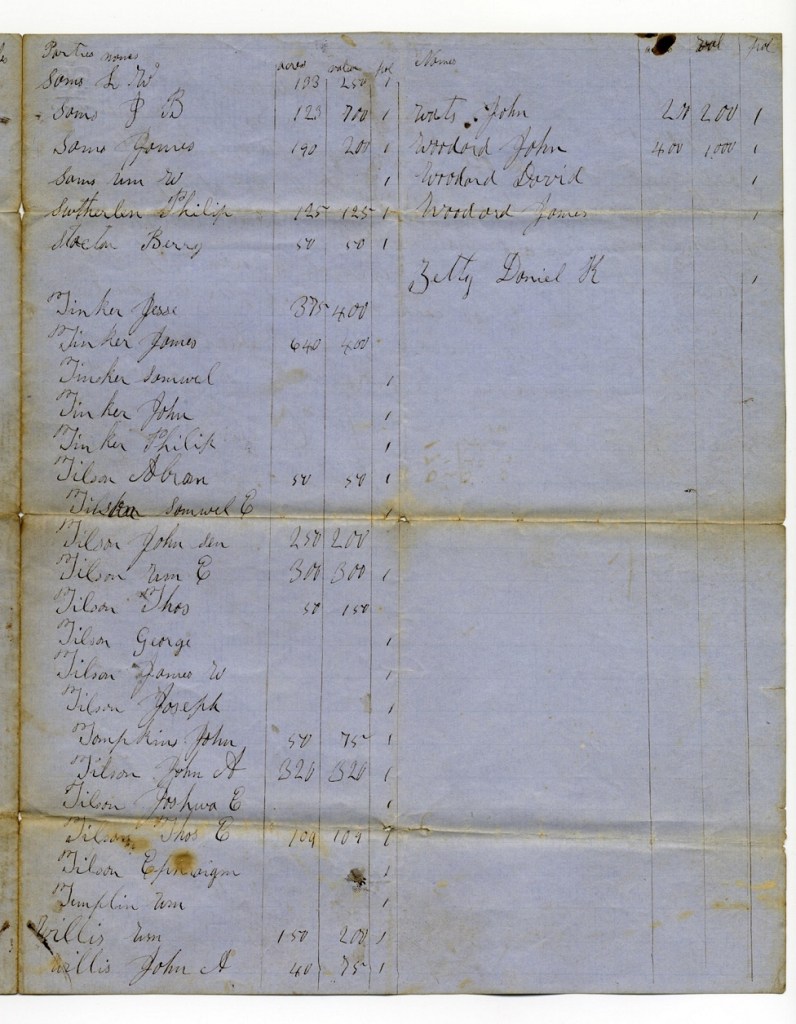 Parties names acres value pol
Sams L W 133 250 1
Sams J B 123 700 1
Sams James 190 200 1
Sams Wm W 1
Sutherlen Philip 125 125 1
Berry 50 50 1
Tinker Jesse 375 400
Tinker James 640 400
Tinker Samwel 1
Tinker John 1
Tinker Philip 1
Tilson Abram 50 50 1
Samwel E 1
Tilson John sen 250 200
Tilson Wm E 300 300 1
Tilson Thos 50 150
Tilson George 1
Tilson James W 1
Tilson Joseph 1
Tompkins John 50 75 1
Tilson John A 320 320 1
Tilson Joshua E 1
Tilson Thos E 109 109 1
Tilson Ephraigm 1
Templin Wm 1
Willis Wm 150 200 1
Willis John A 40 75 1
Names val pol
Wats John 200 1
Woodard John 400 1000 1
Woodard David 1
Woodard James 1
Zetty Daniel K 1